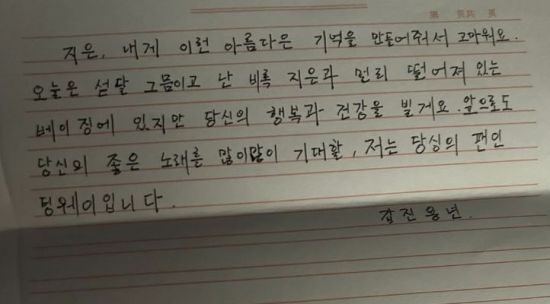 지은, 내게 이런 아름다운 기억을 만들어줘서 고마워요.
오늘은 섣달 그믐이고 난 비록 지은과 멀리 떨어져 있는
베이징에 있지만 당신의 행복과 건강을 빌게요. 앞으로도
당신의 좋은 노래를 많이많이 기대할, 저는 당싱의 팬인
딩웨이입니다.
갑진용년.